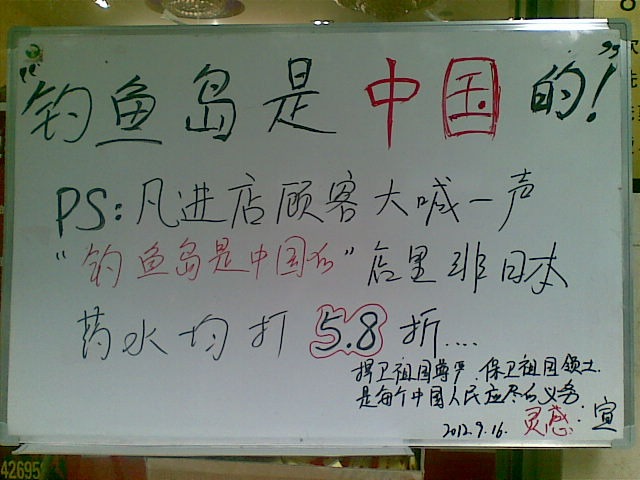 “钓鱼岛是中国的!”
PS:凡进店顾客大喊一声
“钓鱼岛是中国的”店里非日本
药水均打5.8折....
捍卫祖国尊严.保卫祖国领土.
是每个中国人民应尽的义务
2012.9.16. 灵感:宣
42695